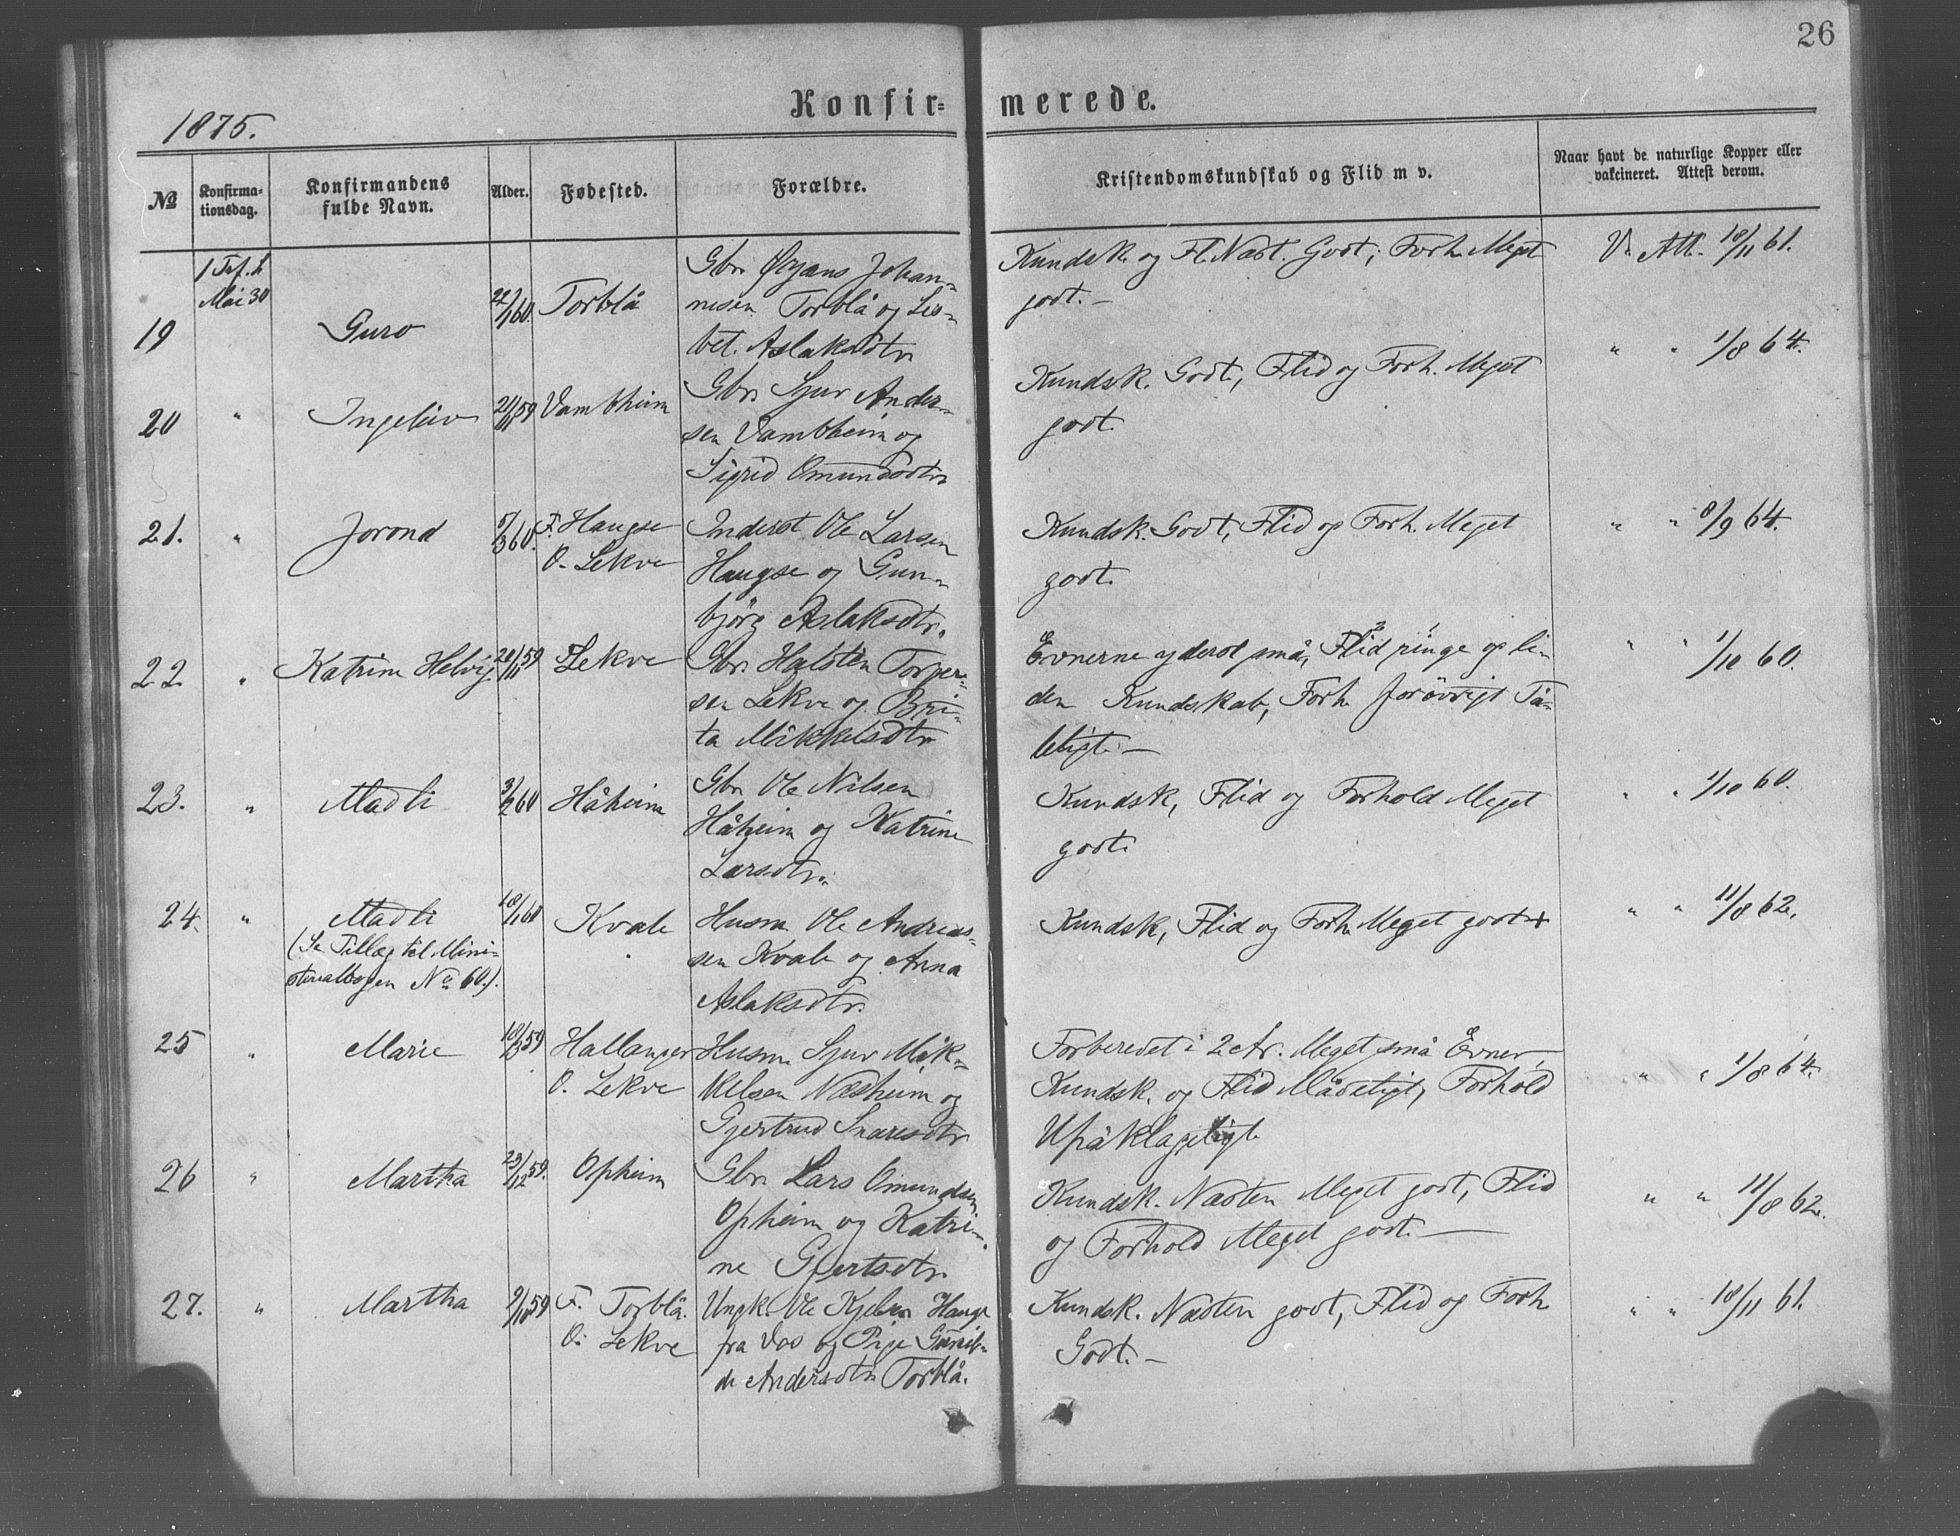 26
Konfir- merede.
1875.
No
Konfirma-
tionsdag.
Konfirmandens
fulde Navn.
Alder.
Fødested.
Forældre.
Kristendomskundskab og Flid m v.
Naar havt de naturlige Kopper eller
vakcineret. Attest derom.
19
1 Trf. h
Mai 30
Guro
22/1 60.
Torblå
Gbr. Ørjans Johan-
nesen Torblå og Lis-
bet. Aslaksdtr.
Kundsk. og Fl. Næst. Godt; Forh. Meget
godt. —
V. Att. 18/11 61.
20
"
Ingeleiv
Vambheim
Gbr. Sjur Ander-
sen Vambheim og
Sigrid Omundsdtr.
Kundsk. Godt, Flid og Forh. Meget
godt.
" " 1/8 64.
21.
"
Jorond
5/3 60.
F. Haugse
O. Lekve
Inderst Ole Larsen
Haugse og Gun-
bjørg Aslaksdtr.
Kundsk. Godt, Flid og Forh. Meget
godt.
" " 8/9 64.
22
"
Katrina Helvig.
20/11 59
Lekve
Gbr. Halsten Torger-
sen Lekve og Bri-
ta Mikkelsdtr
Evnerne yderst små, Flid ringe og li-
den Kundskab, Forh. forøvrigt Tå-
leligt. —
" " 1/10 60.
23.
"
Madli
3/2 60
Håheim
Gbr. Ole Nilsen
Håheim og Katrine
Larsdtr.
Kundsk., Flid og Forhold Meget
godt.
" " 1/10 60.
24.
"
Madli
(Se Tillæg til Mini-
sterialbogen No 60.).
18/1 60
Kvale
Husm. Ole Andreas-
sen Kvale og Anna
Aslaksdtr.
Kundsk., Flid og Forh. Meget godt +
" " 11/8 62.
25
"
Marie
18/3 59
Hallanger
O. Lekve
Husm. Sjur Mik-
kelsen Næsheim og
Gjertrud Snaresdtr.
Forberedet i 2 År. Meget små Evner,
Kundsk. og Flid Mådeligt, Forhold
Upåklageligt
" " 1/8 64.
26
"
Martha
29/12 59.
Opheim
Gbr. Lars Omundsen
Opheim og Katri-
ne Gjertsdtr.
Kundsk. Næsten Meget godt, Flid
og Forhold Meget godt. —
" " 11/8 62.
27.
"
Martha
9/10 59
F. Torblå.
O. Lekve
Ungk. Ole Kjels. Hauge
fra Vos og Pige Gunil-
de Andersdtr. Torblå.
Kundsk. Næsten godt, Flid og Forh.
Godt. —
" " 18/11 61.